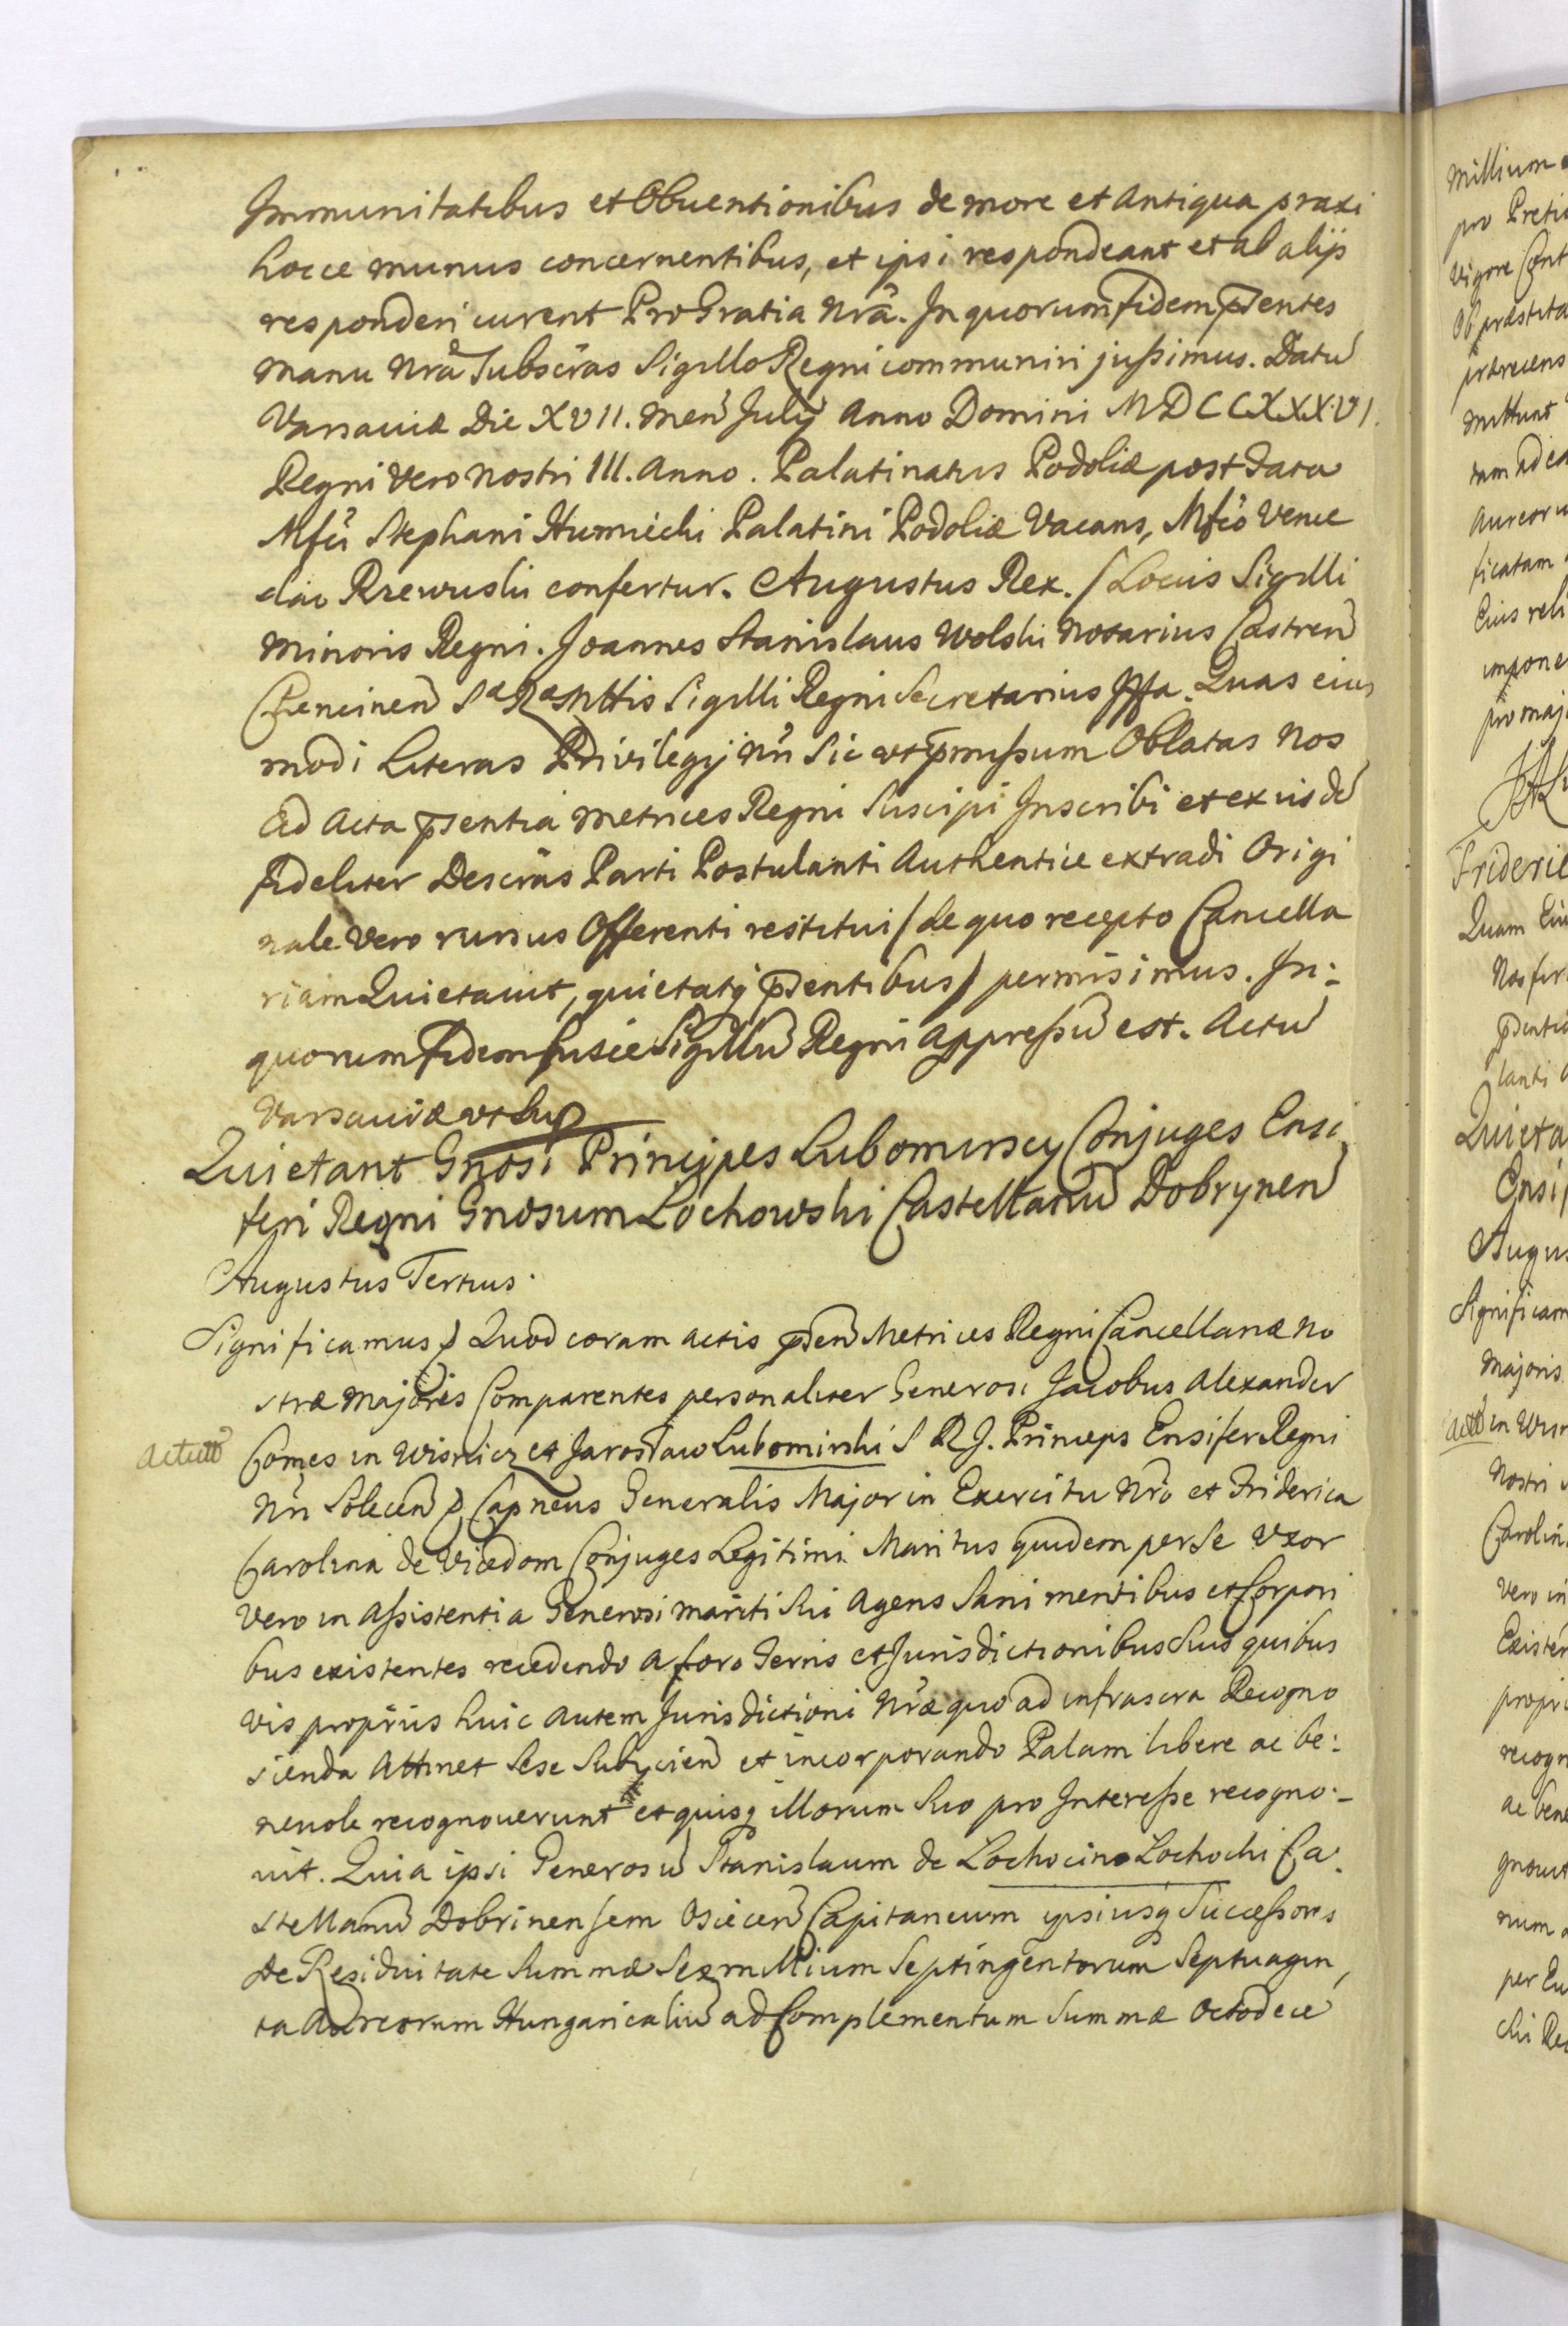 Immunitatibus et Obuentionibus de more et Antiqua praxi
hocce munus concernentibus, et ipsi respondeant et ab alijs
responderi curent Pro Gratia Nrâ. In quorum fidem pñsentes
manu Nrâ Subscras Sigillo Regni communiri jussimus. Datũ
Varsaviæ Die XVII. Men July Anno Domini MDCCXXXVI.
Regni Vero Nostri III. Anno. Palatinatus Podoliæ post data
Mfci Stephani Humiecki Palatini Podoliæ Vacans, Mfco Vence
slao Rzewuski confertur. Augustus Rex. / Locus Sigilli
minoris Regni. Joannes Stanislaus Wolski Notarius Castren
Sigilli Regni Secretarius Quas eius
modi Literas Privilegij Nri Sic ut pmissum Oblatas Nos
ad Acta psentia Metrices Regni Suscipi Inscribi et ex iisdẽ
fideliter Descras Parti Postulanti Authentice extradi Origi
nale Vero rursus Offerenti restitui / de quo recepto Cancella
riam Quietavit, quietatq psentibus / permisimus. In:
quorum fidem Sigillũ Regni appressũ est. Actũ
Varsaviæ ut Sup
Quietant Gnosi Principes Lubomirscy Conjuges Ensi
feri Regni Gnosum Łochowski Castellanũ Dobrynen
Augustus Tertius.
Significamus p Quod coram actis psen Metrices Regni Cancellariæ No
stræ Majoris Comparentes personaliter Generosi Jacobus Alexander
Actum Comes in Wisnicz et Jarosław Lubomirski S R J. Princeps Ensifer Regni
Nri Solecen p Capneus Generalis Major in Exercitu Nro et Friderica
Carolina de Vicedom Conjuges Legitimi Maritus quidem per se Uxor
Vero in Assistentia Generosi mariti Sui Agens Sani mentibus et Corpori
bus existentes recedendo a foro Terris et Jurisdictionibus Suis quibus
vis proprijs huic autem Jurisdictioni Nræ quo ad infrascra Recogno
scenda Attinet Sese Subijcien et incorporando Palam libere ac be:
nevole recognoverunt et quisq illorum Suo pro Interesse recogno:
vit. Quia ipsi Generosũ Stanislaum de Łochocino Łochocki Ca
stellanũ Dobrinensem Osiecen Capitaneum ipsiusq Successores
de Residuitate Summæ Sex millium Septingentorum Septuagin
ta Aureorum Hungaricaliũ ad Complementum Summæ Octodecẽ
millium
pro Pretio
vigore
Ob præstita
mittunt
ficatam
Eius
impone
pro maj
Frideric
Quam
Nos
psentia
lanti
Quieta
Ensi
Augus
Significam
Majoris
Act in Wisn
Nostri
Carolin
Vero in
Existen
propri
recogn
ac bene
gnovit
num
per